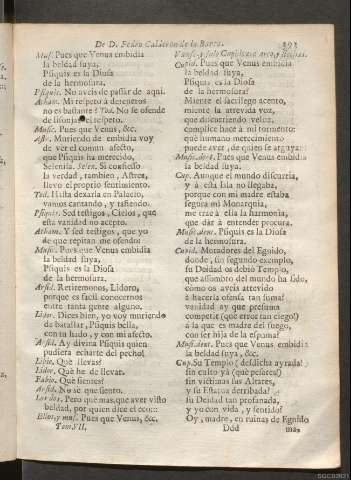 De D. Pedro Calderon de la Barca. 393
Mus. Pues que Venus embidia
la beldad suya,
Psiquis es la Diosa
de la hermosura.
Psiquis. No aveis de passar de aqui.
Atham. Mi respeto à deteneros
no es bastante? Tod. No se ofende
de lisonjas el respeto.
Music. Pues que Venus, &c.
Astr. Muriendo de embidia voy
de vèr el comun afecto,
que Psiquis ha merecido,
Selenisa. Selen. Si confiesso
la verdad, tambien, Astrea,
llevo el proprio sentimiento.
Tod. Hasta dexarla en Palacio,
vamos cantando, y tañendo.
Psiquis. Sed testigos, Cielos, que
esta vanidad no acepto.
Atham. Y sed testigos, que yo
de que repitan me ofendo:
Music. Pues que Venus embidia
la beldad suya,
Psiquis es la Diosa
de la hermosura.
Arsid. Retiremonos, Lidoro,
porque es facil conocernos
entre tanta gente alguno.
Lidor. Dices bien, yo voy muriendo
de batallar, Psiquis bella,
con tu hado, y con mi afecto.
Arsid. Ay divina Psiquis quien
pudiera echarte del pecho!
Libio. Què llevas?
Lidor. Què he de llevar.
Fabio. Què sientes?
Arsid. No sè que siento.
Los dos. Pero què mas, que aver visto
beldad, por quien dice el eco:::
Ellos, y mus. Pues que Venus, &c.
Tom. VII.
Vanse, y sale Cupido con arco, y flechas.
Cupid. Pues que Venus embidia
la beldad suya,
Psiquis es la Diosa
de la hermosura?
Miente el sacrilego acento,
miente la atrevida voz,
que discurriendo veloz,
complice hace à mi tormento:
què humano merecimiento
puede aver, de quien se arguya:
Music. dent. Pues que Venus embidia
la beldad suya.
Cup. Aunque el mundo discurria,
y à esta Isla no llegaba,
porque con mi madre estaba
segura mi Monarquia,
me trae à ella la harmonia,
que dàr à entender procura.
Music. dent. Psiquis es la Diosa
de la hermosura.
Cupid. Moradores del Egnido,
donde, sin segundo exemplo,
su Deidad os debiò Templo,
que assombro del mundo ha sido,
como os aveis atrevido
à hacerla ofensa tan suma?
vanidad ay que presuma
competir (què error tan ciego!)
à la que es madre del fuego,
con ser hija de la espuma?
Music. dent. Pues que Venus embidia
la beldad suya, &c.
Cup. Su Templo (desdicha ayrada!)
sin culto yà (què pesares!)
sin victimas sus Altares,
y su Estatua derribada?
su Deidad tan profanada,
y yo con vida, y sentido?
Oy, madre, en ruinas de Egnido
Ddd